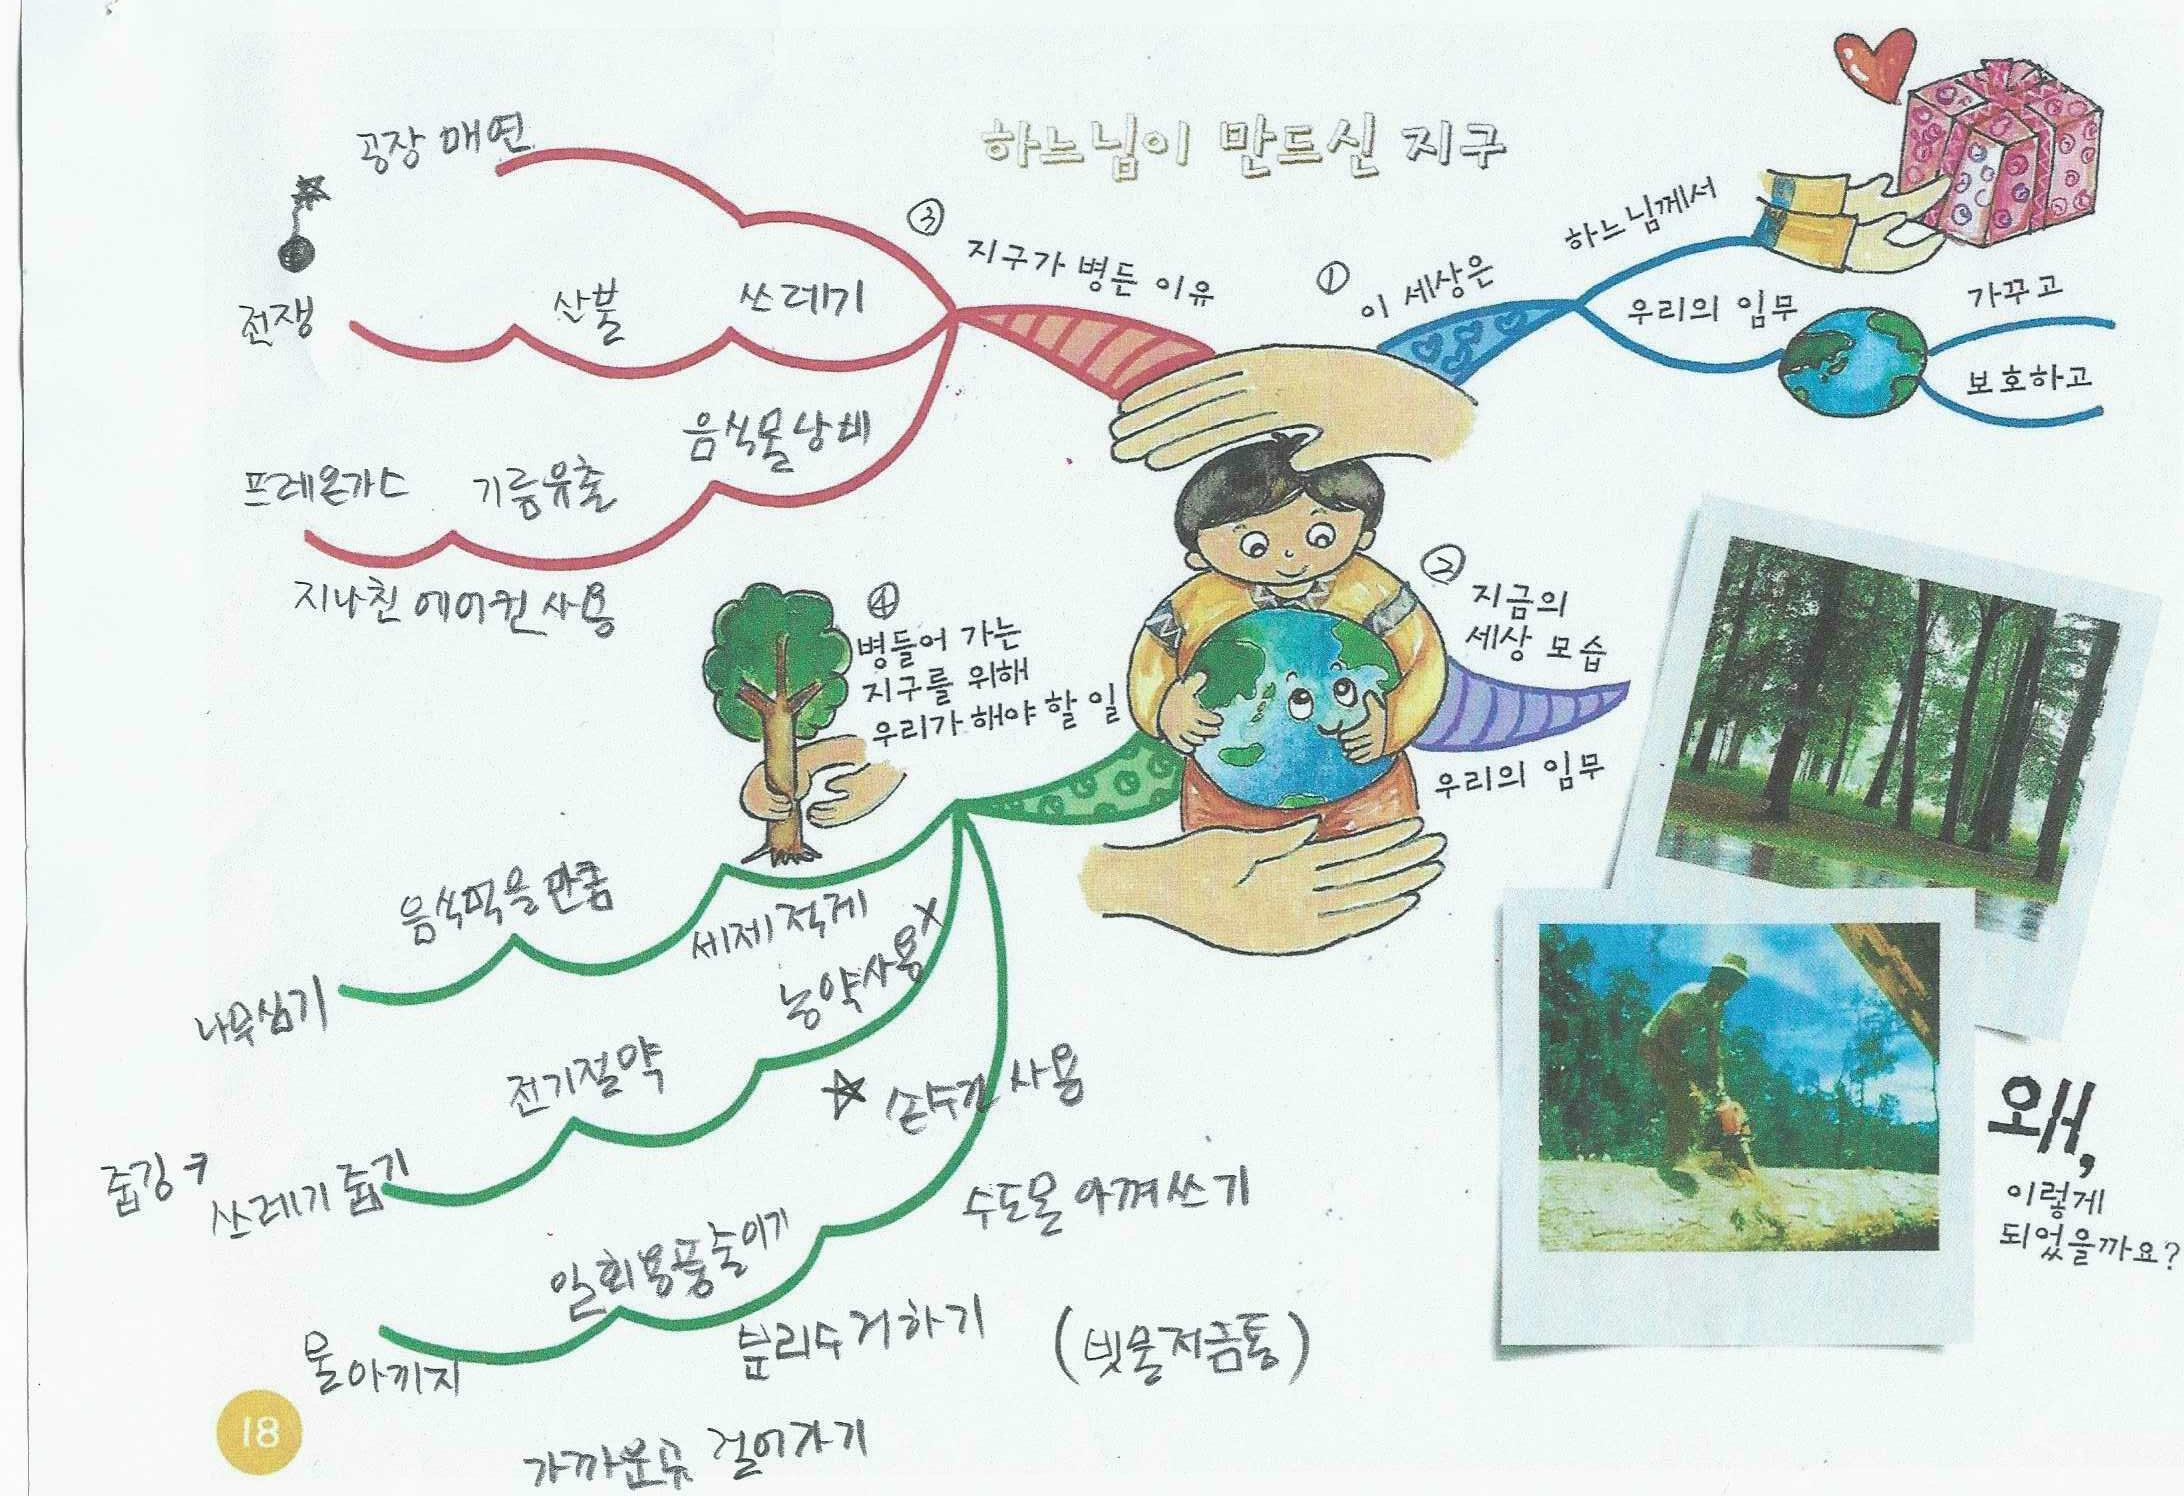 하느님이 만드신 지구
①
이 세상은
하느님께서
우리의 임무
가꾸고
보호하고
②
지금의
세상 모습
우리의 임무
왜,
이렇게
되었을까요?
③
지구가 병든 이유
공장 매연
쓰레기
산불
전쟁
음식물낭비
기름유출
프레온가스
지나친 에어컨 사용
④
병들어 가는
지구를 위해
우리가 해야 할 일
세제 적게
음식먹을 만큼
나무심기
농약사용 X
전기절약
쓰레기 줍기
줍깅
손수건 사용
수도물 아껴쓰기
일회용품줄이기
분리수거하기
(빗물저금통)
물아끼지
가까운곳 걸어가기
18